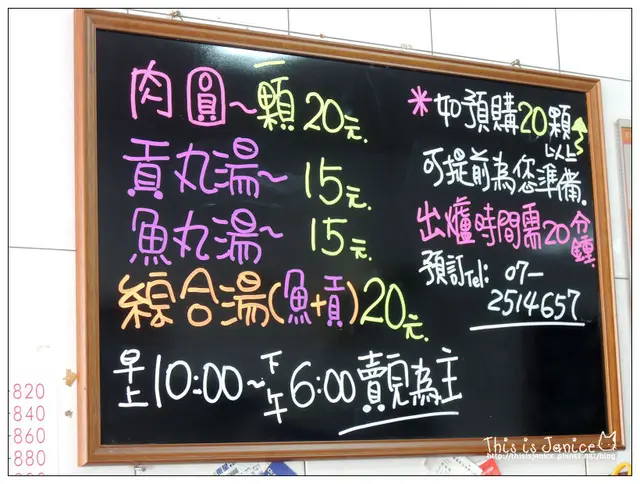 肉圓~一顆20元.
貢丸湯~15元.
魚丸湯~15元.
綜合湯(魚+貢)20元.
早上10:00~下午6:00賣完為主
*如預購20顆以上
可提前為您準備.
出爐時間需20分鐘.
預訂Tel: 07-
2514657
820
840
860
880
This is Janice
http://thisisjanice.pixnet.net/blog